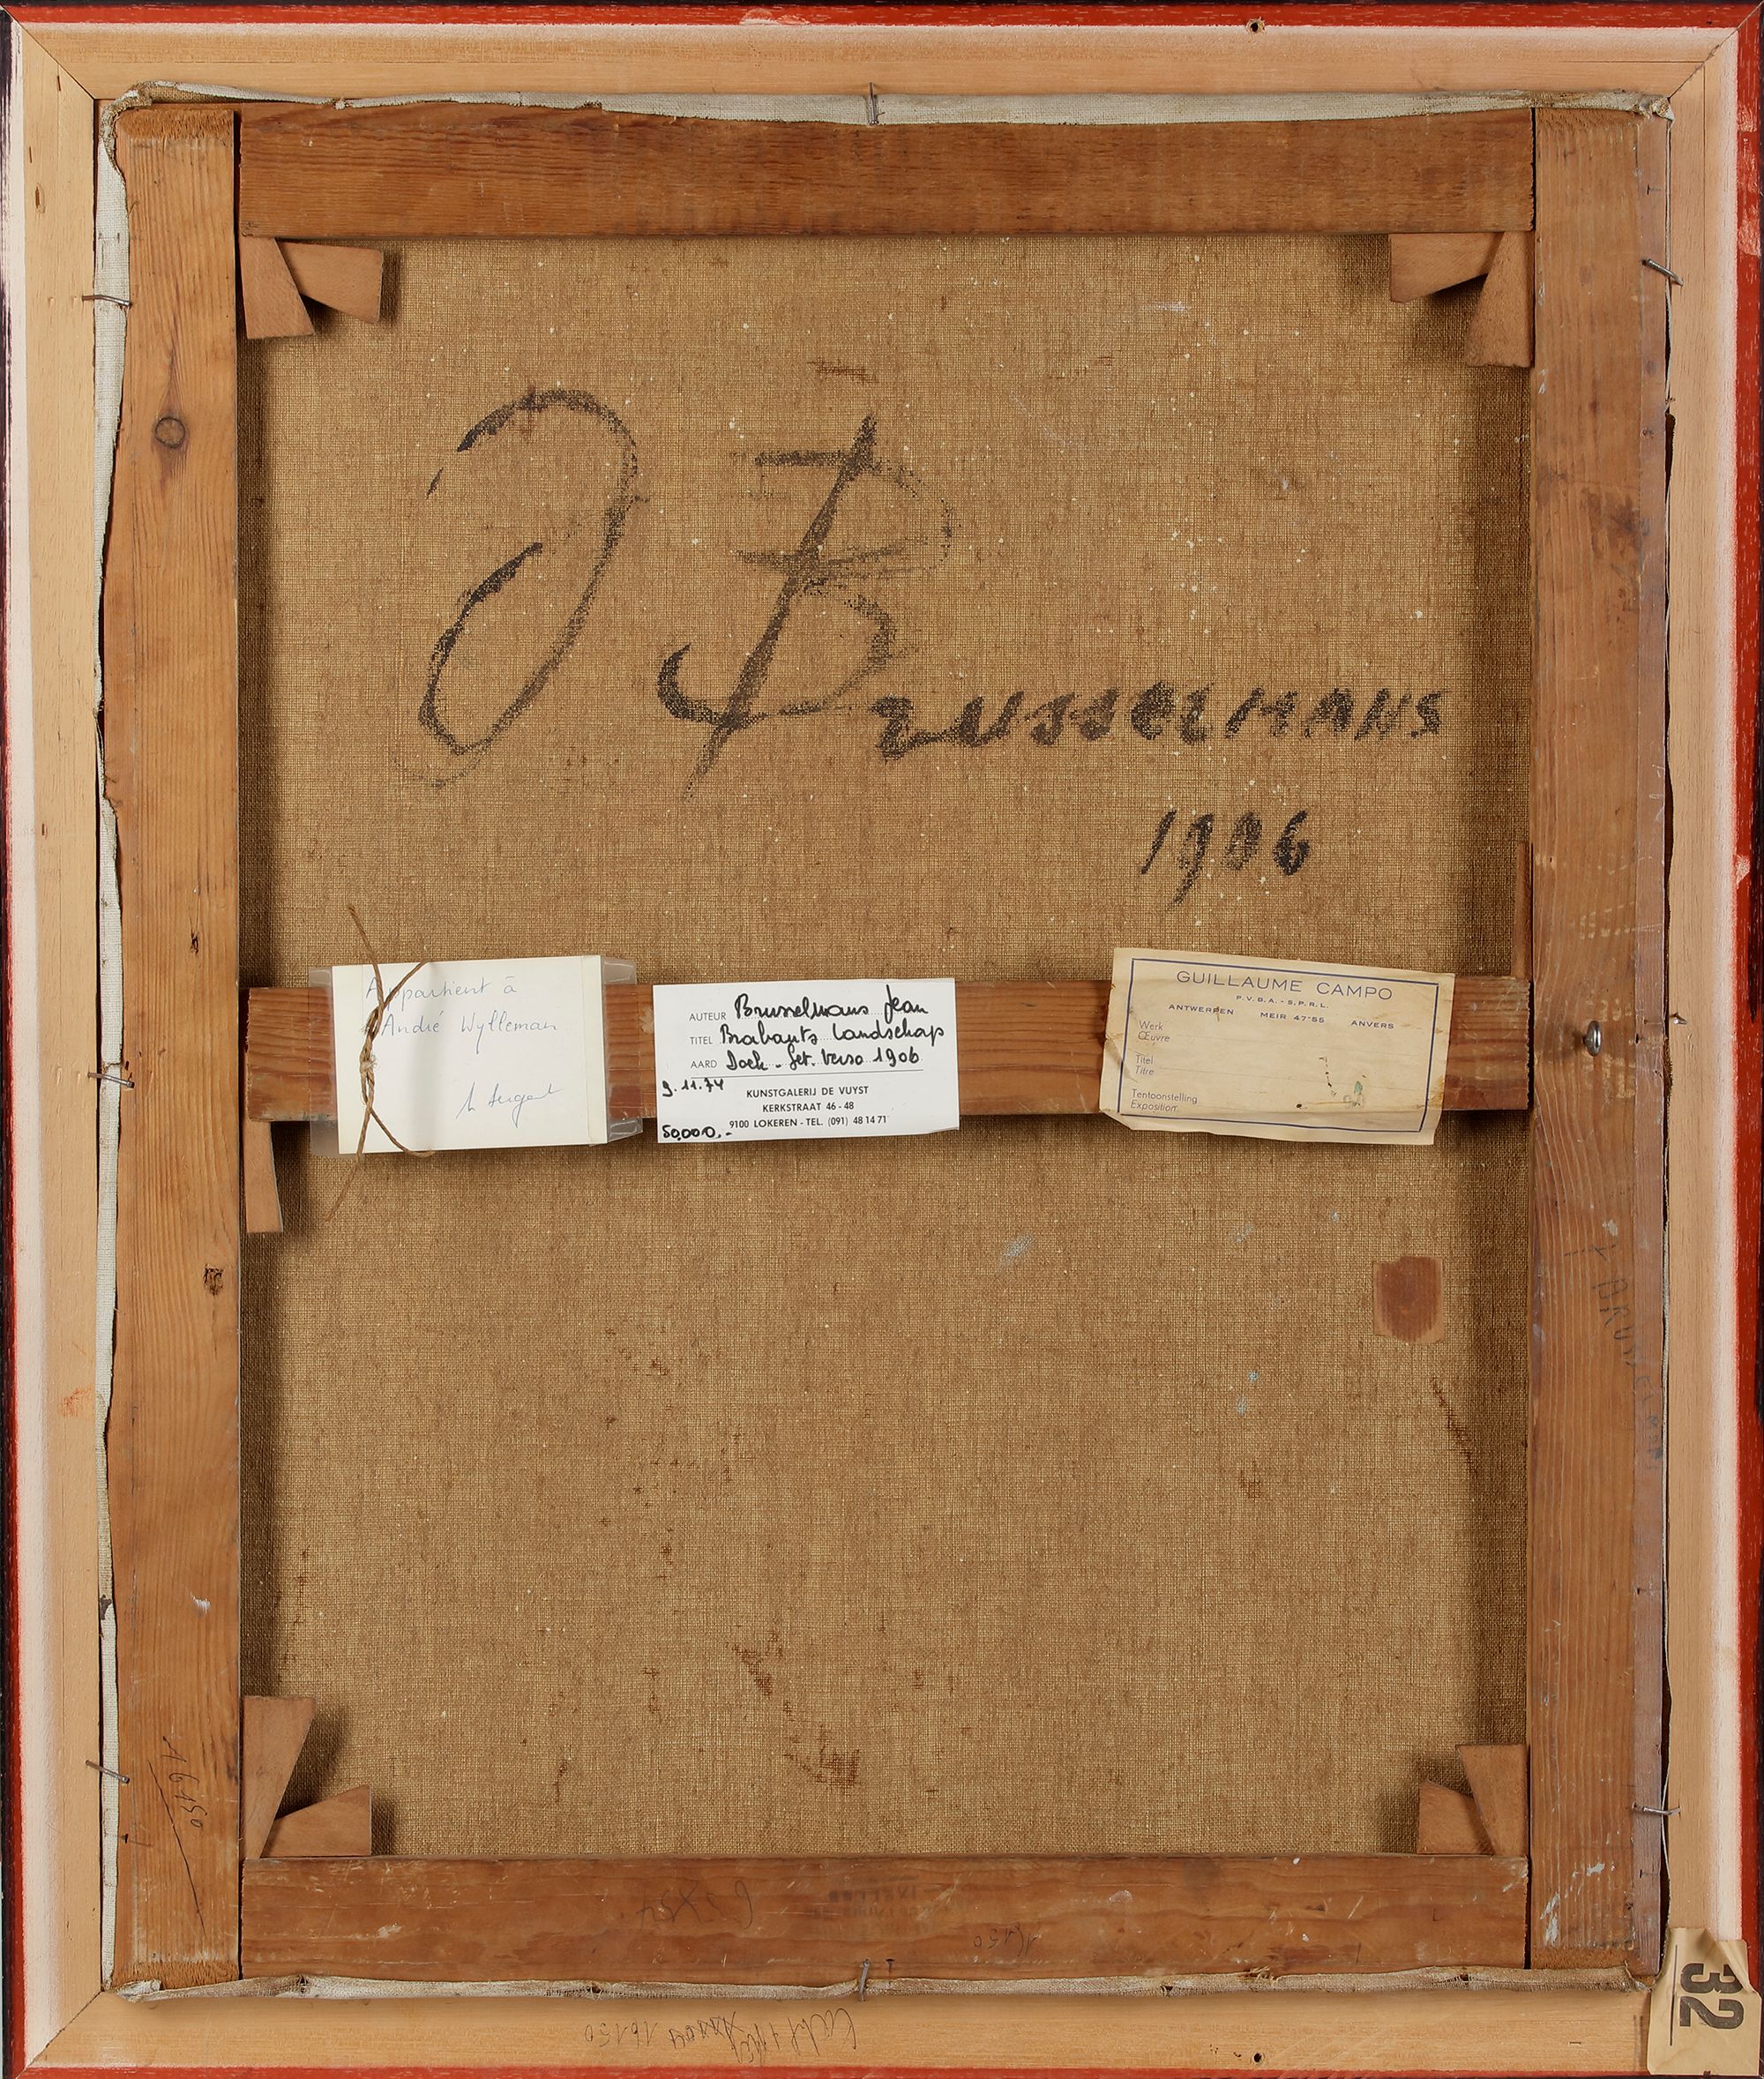 J Brusselmans
1906
Appartient à
André Wylleman
AUTEUR Brusselmans Jean
TITEL Brabants landschap
AARD Doek - Get. verso 1906
9.11.74
KUNSTGALERIJ DE VUYST
KERKSTRAAT 46 - 48
9100 LOKEREN - TEL. (091) 48 14 71
50.000,-
GUILLAUME CAMPO
P.V.B.A. - S.P.R.L.
ANTWERPEN MEIR 47-55 ANVERS
Werk
Œuvre
Titel
Titre
Tentoonstelling
Exposition
16150
32